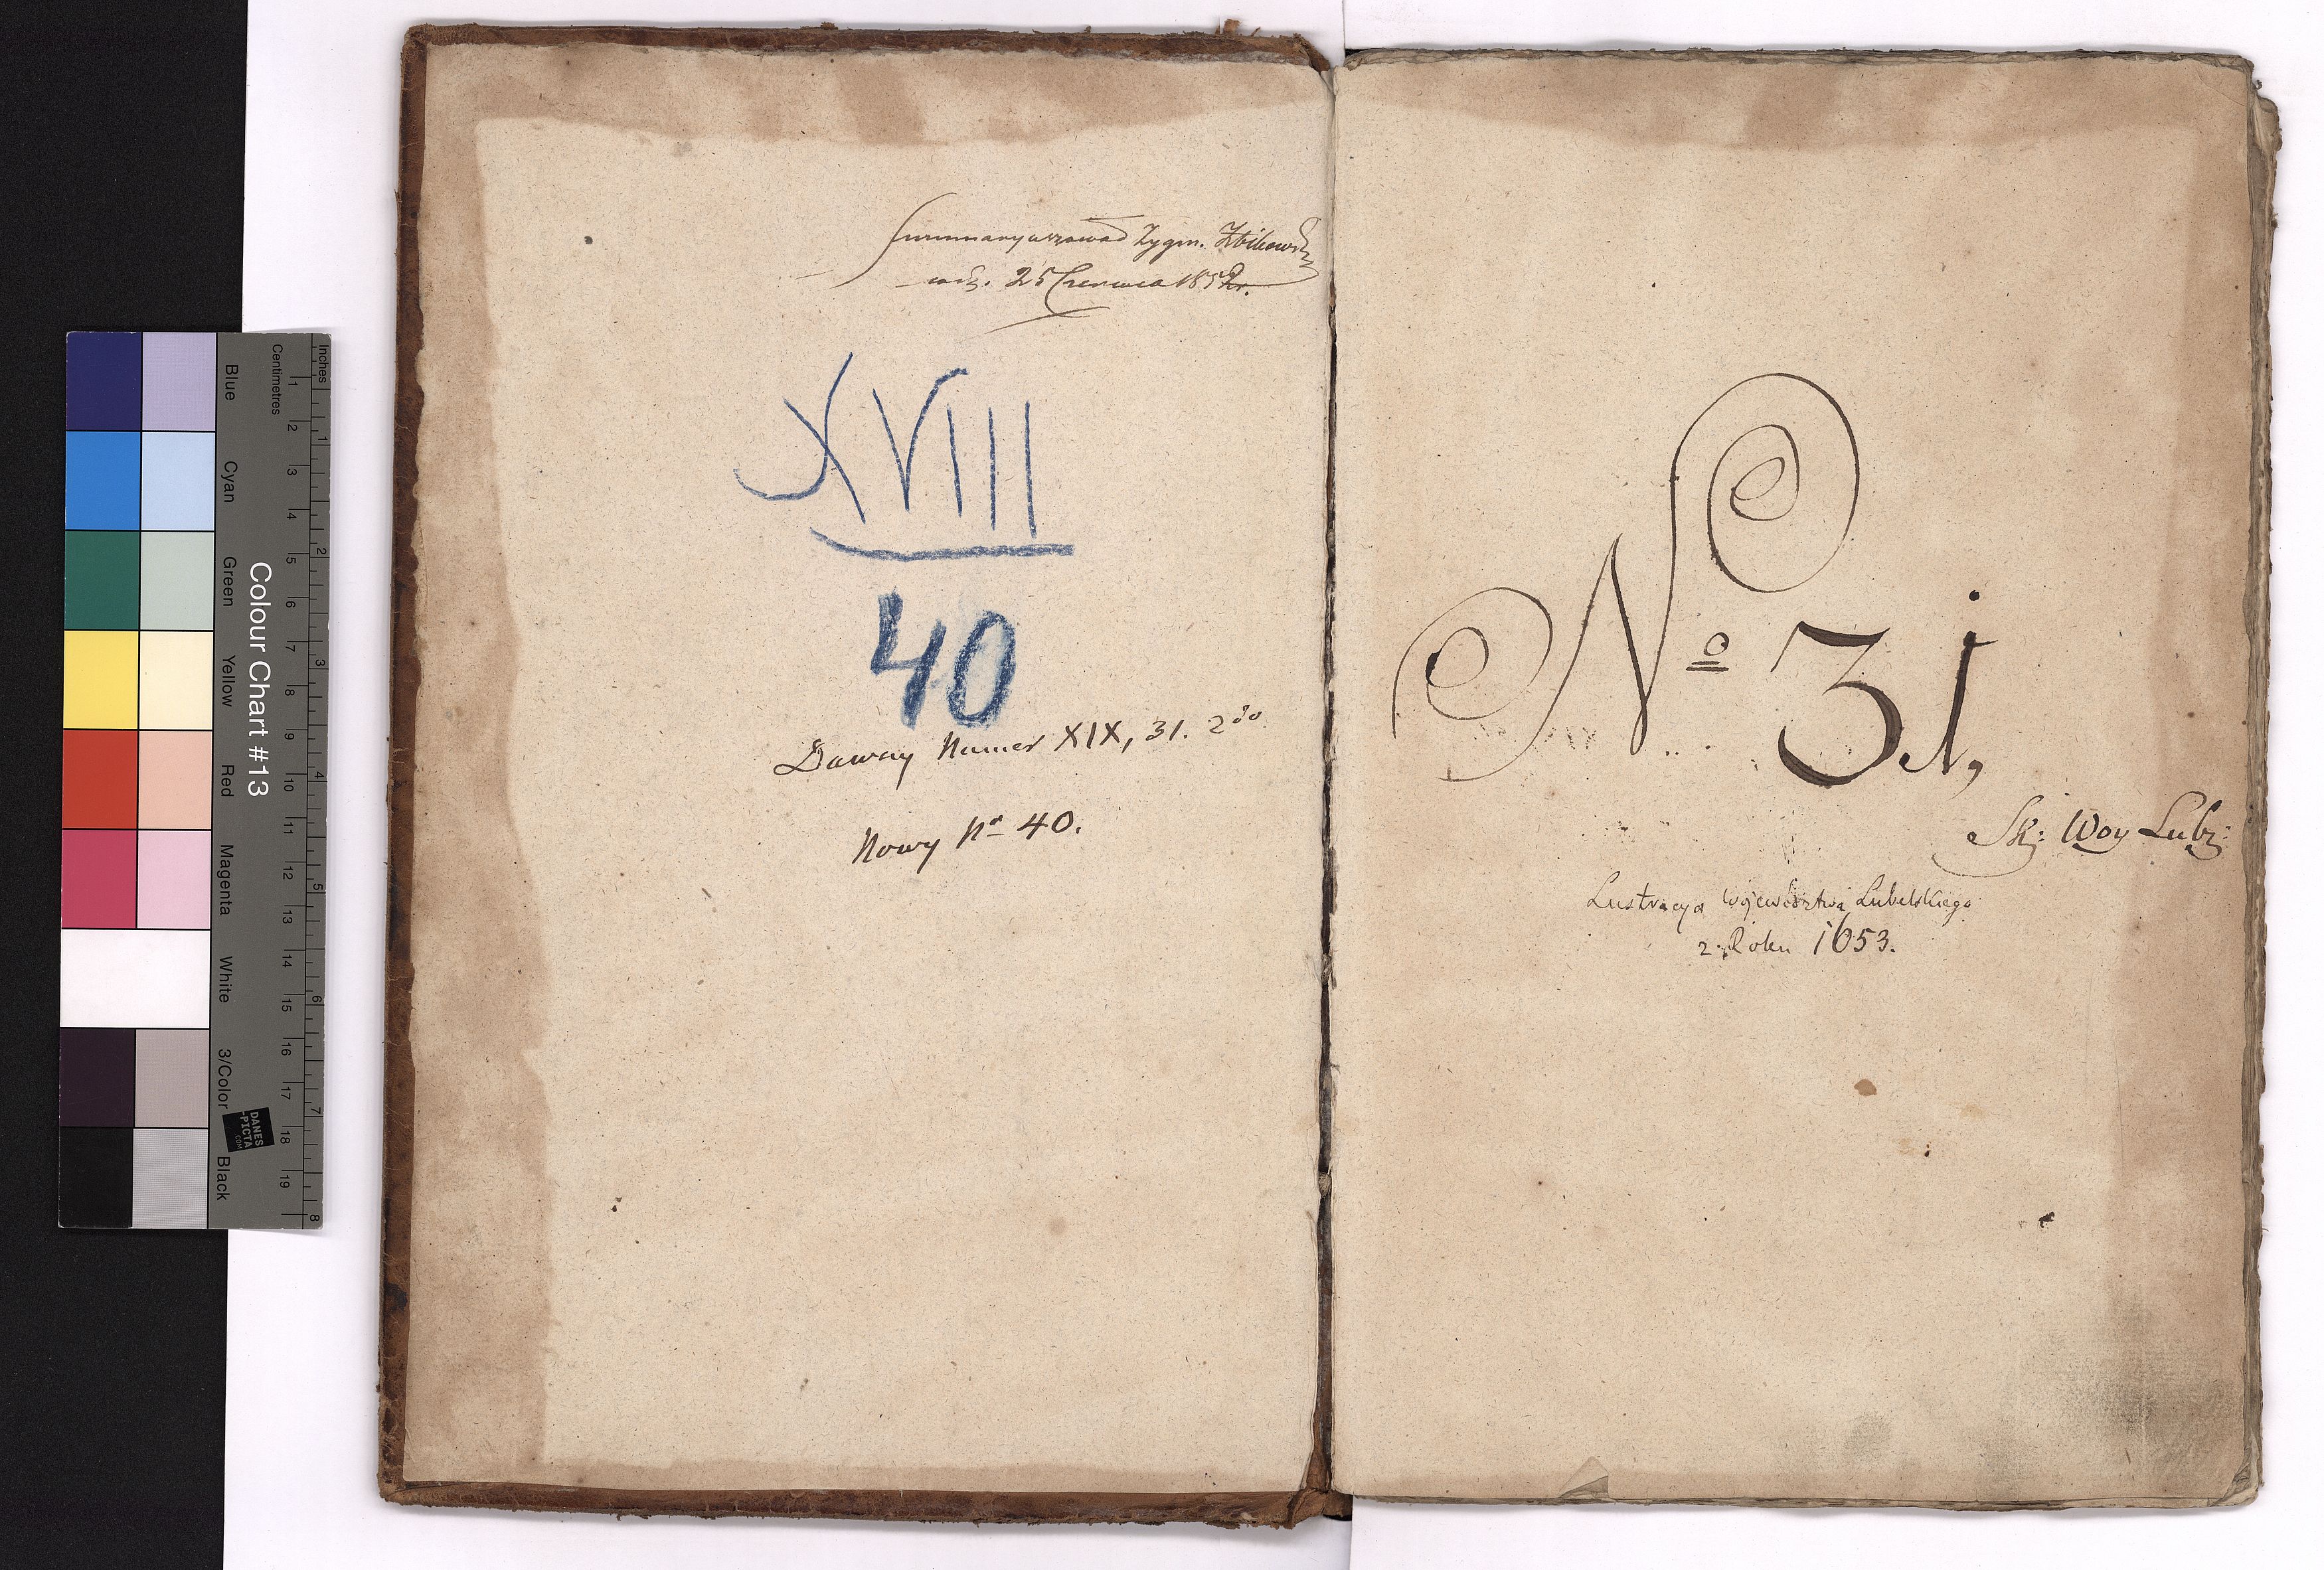 Inches
Centimetres
1 2 3 4 5 6 7 8 9 10 11 12 13 14 15 16 17 18 19
1 2 3 4 5 6 7 8
Colour Chart #13
Blue Cyan Green Yellow Red Magenta White 3/Color Black
DANES
-PICTA
.COM
Summaryzował Zygm. Zbikowski
25 Czerwca 1852r.
XVIII
40
Dawny Numer XIX, 31. 2do
Nowy Nr 40.
No 31,
Sk: Woy Lubz:
Lustracya Województwa Lubelskiego
z Roku 1653.